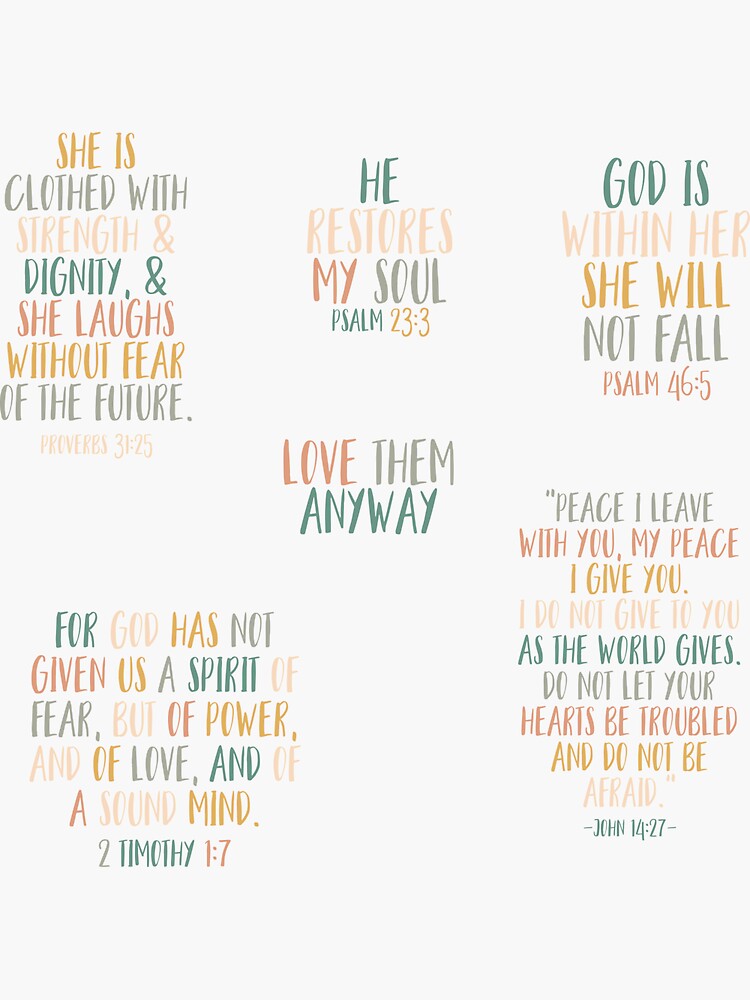 SHE IS
CLOTHED WITH
STRENGTH &
DIGNITY, &
SHE LAUGHS
WITHOUT FEAR
OF THE FUTURE.
PROVERBS 31:25
HE
RESTORES
MY SOUL
PSALM 23:3
GOD IS
WITHIN HER
SHE WILL
NOT FALL
PSALM 46:5
LOVE THEM
ANYWAY
FOR GOD HAS NOT
GIVEN US A SPIRIT OF
FEAR, BUT OF POWER,
AND OF LOVE, AND OF
A SOUND MIND.
2 TIMOTHY 1:7
"PEACE I LEAVE
WITH YOU, MY PEACE
I GIVE YOU.
I DO NOT GIVE TO YOU
AS THE WORLD GIVES.
DO NOT LET YOUR
HEARTS BE TROUBLED
AND DO NOT BE
AFRAID."
-JOHN 14:27-